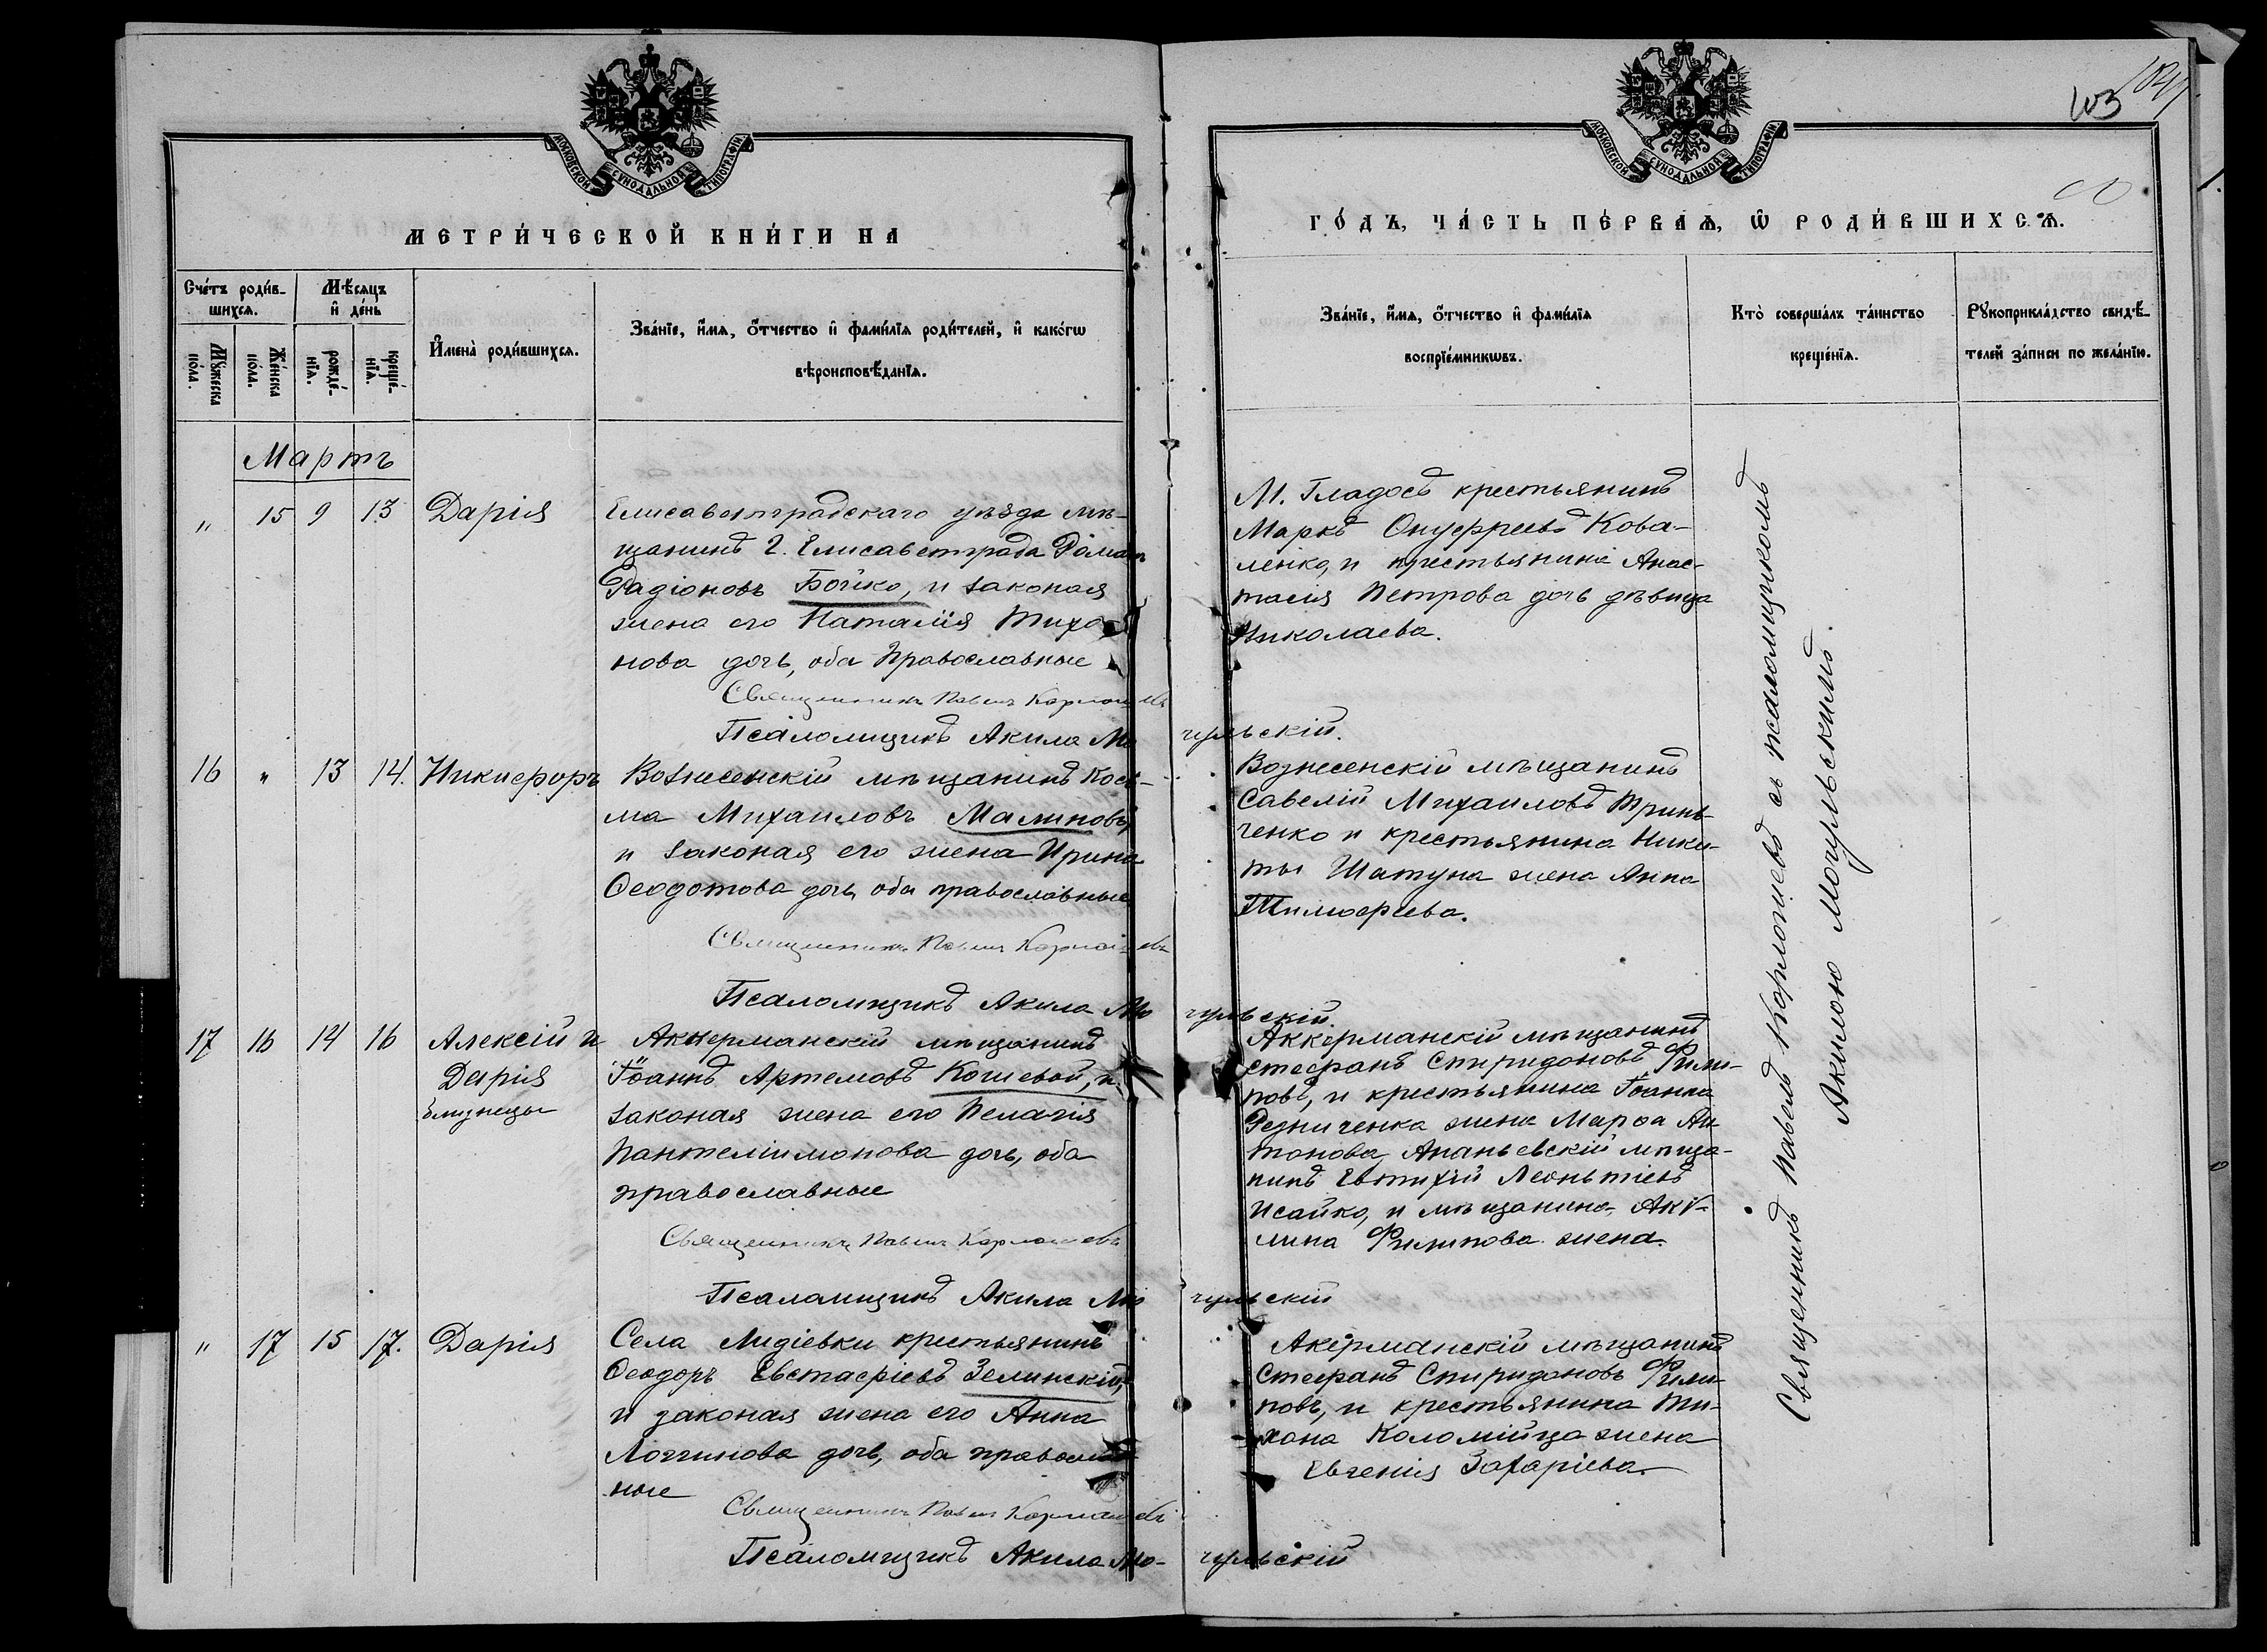 103
МОСКОВСКОЙ СУНОДАЛЬНОЙ ТИПОГРАФІИ
МЕТРИ́ЧЕСКОЙ КНИ́ГИ НА
Сче́тъ роди́в-
шихсѧ.
Мѣ́сѧцъ
и҆ де́нь
Мꙋ́жеска
по́ла.
Же́нска
по́ла.
рожде́-
нїѧ.
креще́-
нїѧ.
И҆мена̀ роди́вшихсѧ.
Зва́нїе, и҆́мѧ, ѻ҆́тчество и҆ фами́лїѧ роди́телей, и҆ како́гѡ
вѣроисповѣ́данїѧ.
Мартъ
" 15 9 13 Дарія
Елисаветградскаго уѣзда мѣ-
щанинъ г. Елисаветграда Роман
Радіоновъ Бойко, и законая
жена его Наталія Тихо
нова дочь, оба Православные
Священникъ Павелъ Кормошевъ
Псаломщикъ Акила Мо гульскій.
16 " 13 14. Никифоръ
Вознесенскій мѣщанинъ Кось-
ма Михаиловъ Малиновъ,
и законая его жена Ирина
Ѳеодотова дочь, оба православные
Священникъ Павелъ Кормошевъ
Псаломщикъ Акила Мо гульскій.
17 16 14 16 Алексій и
Дарія
близнецы
Аккерманскій мѣщанинъ
Іоаннъ Артемовъ Кошевой, и
законая жена его Пелагія
Пантелиимонова дочь, оба
православные
Священникъ Павелъ Кормошевъ
Псаламщикъ Акила Мо гульскій
" 17 15 17. Дарія
Села Лидіевки крестьянинъ
Ѳеодоръ Евстафіевъ Зелинскій,
и законая жена его Анна
Логгинова дочь, оба православ
ные
Священникъ Павелъ Кормошевъ
Псаломщикъ Акила Мо- гульскій
МОСКОВСКОЙ СУНОДАЛЬНОЙ ТИПОГРАФІИ
ГО́ДЪ, ЧА́СТЬ ПЕ́РВАѦ, Ѡ҆ РОДИ́ВШИХСѦ.
Зва́нїе, и҆́мѧ, ѻ҆́тчество и҆ фами́лїѧ
воспрїе́мникѡвъ.
Кто̀ соверша́лъ та́инство
креще́нїѧ.
Рꙋкоприкла́дство свидѣ́-
телей за́писи по жела́нїю.
М. Гладосъ крестьянинъ
Маркъ Онуфріевъ Кова-
ленко, и крестьянина Анас-
тасія Петрова дочь дѣвица
Николаева.
Вознесенскій мѣщанинъ
Савелій Михаиловъ Тринь-
ченко и крестьянина Ники-
ты Шатуна жена Анна
Тимоѳеева.
Аккерманскій мѣщанинъ
Стефанъ Спиридоновъ Фили-
повъ, и крестьянина Іоанна
Резниченка жена Марѳа Ан
тонова, Ананьевскій мѣща-
нинъ Евтихій Леонтіевъ
Исайко, и мѣщанина Аку-
лина Филипова жена.
Акерманскій мѣщанинъ
Стефанъ Спиридоновъ Фили-
повъ, и крестьянина Ти-
хона Коломійца жена
Евгенія Захаріева.
Священникъ Павелъ Кормошевъ съ псаломщикомъ
Акилою Могульскимъ.